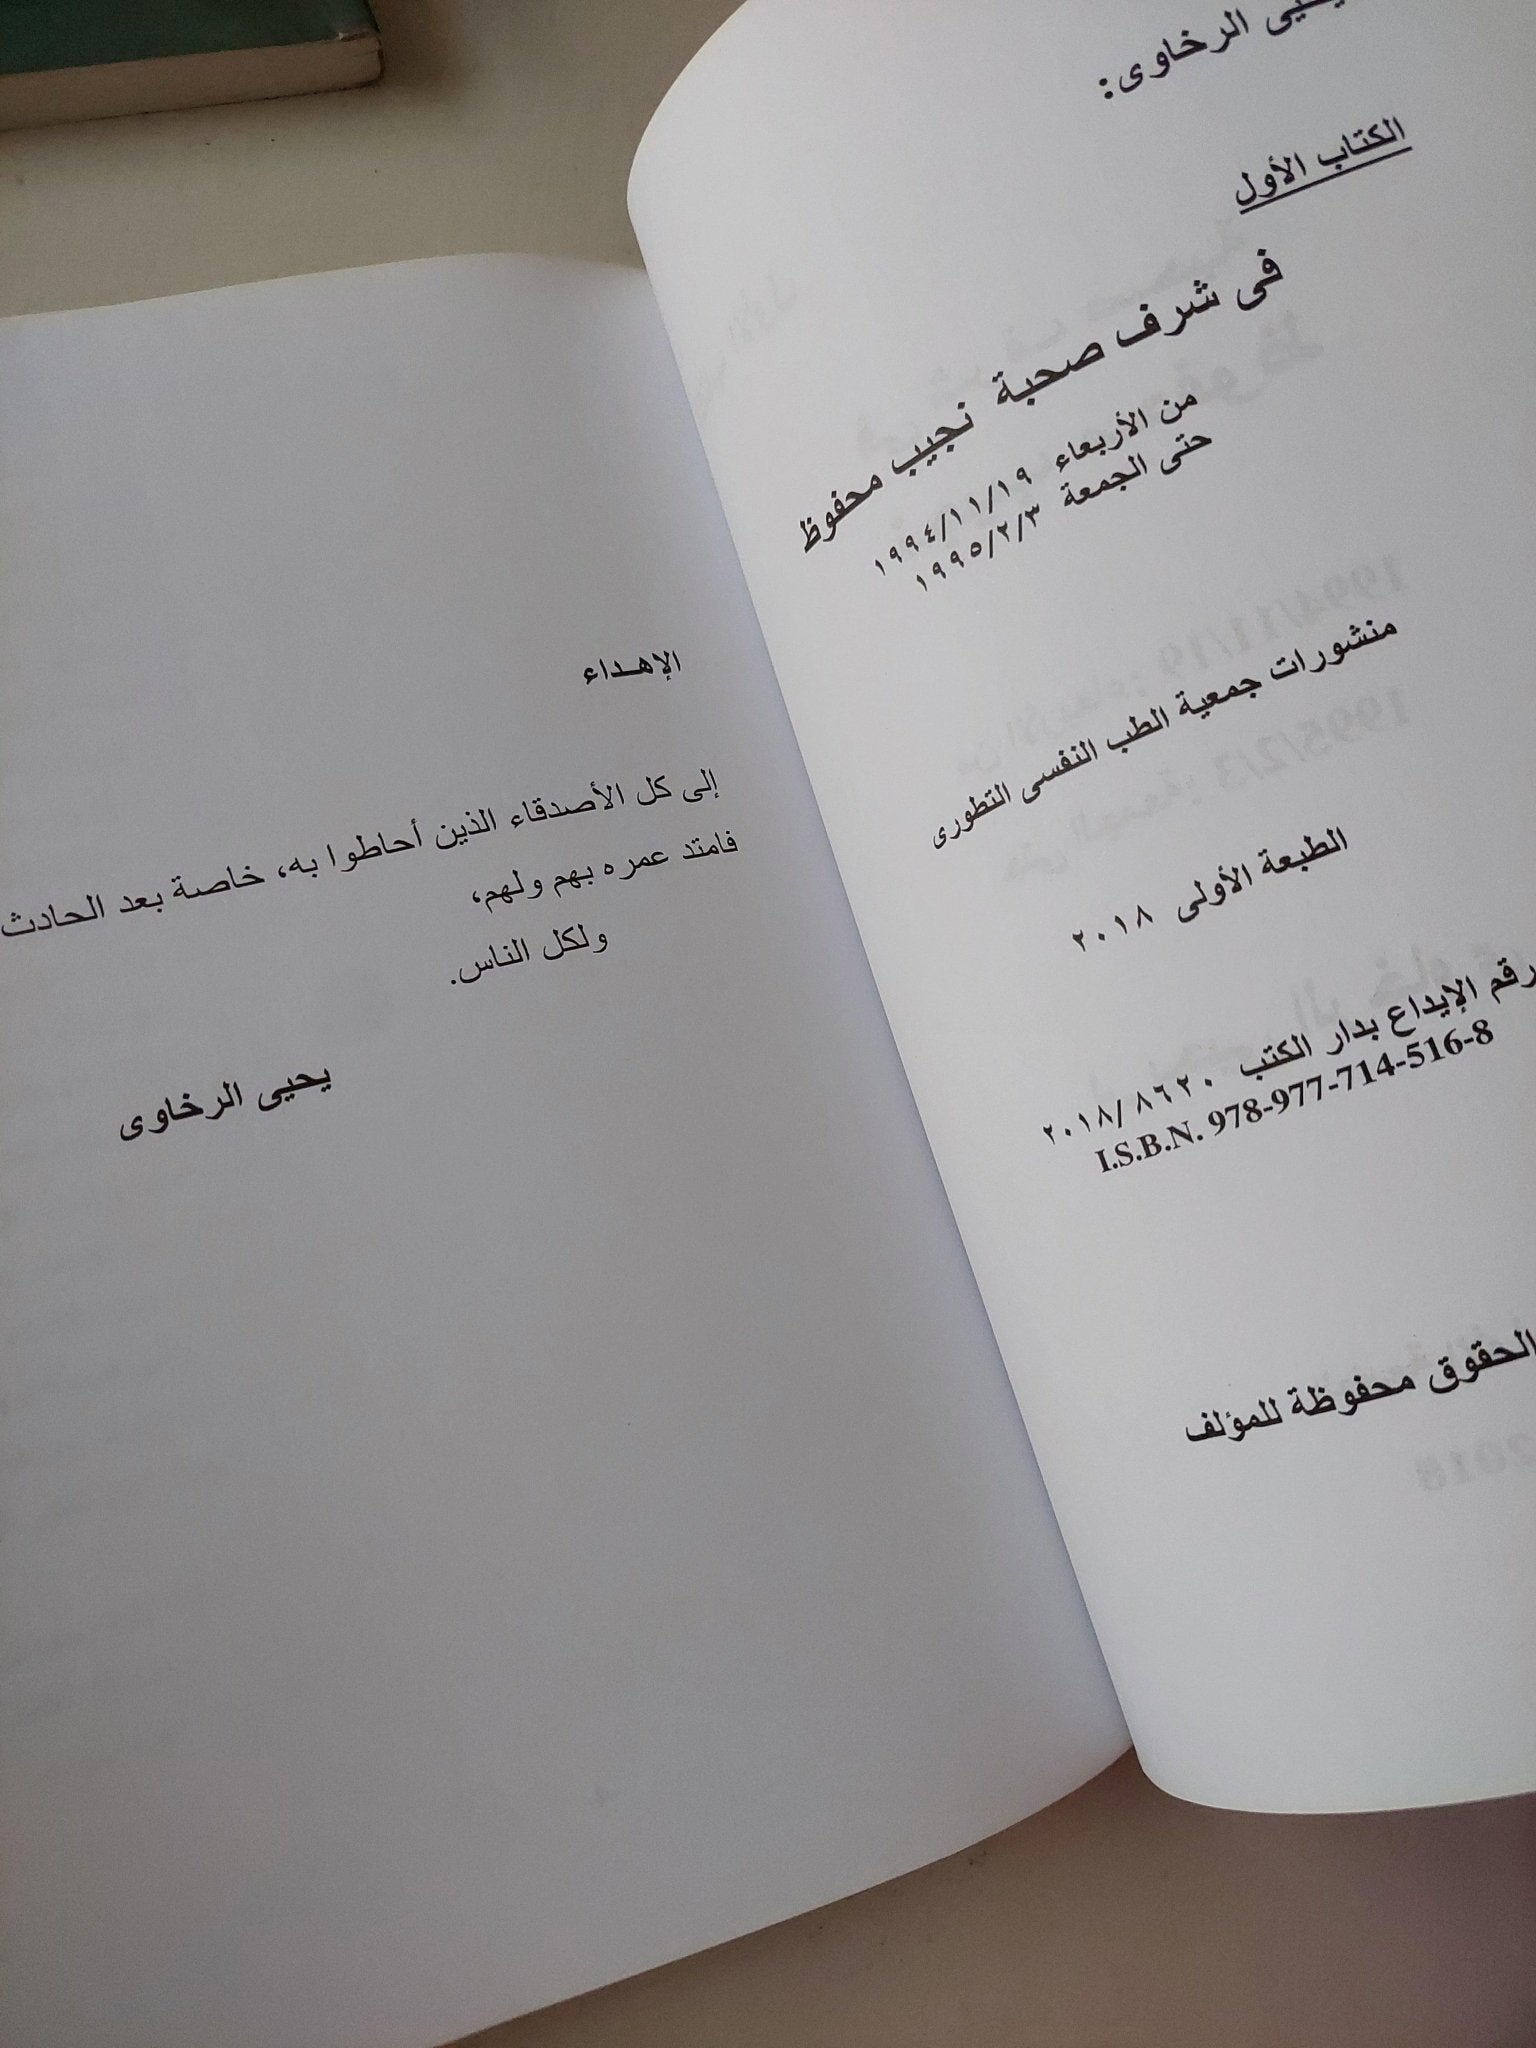 يحيى الرخاوى:
الكتاب الأول
فى شرف صحبة نجيب محفوظ
من الأربعاء ١٩٩٤/١١/١٩
حتى الجمعة ١٩٩٥/٢/٣
منشورات جمعية الطب النفسى التطورى
الطبعة الأولى ٢٠١٨
رقم الإيداع بدار الكتب ٢٠١٨/٨٦٢٠
I.S.B.N. 978-977-714-516-8
الحقوق محفوظة للمؤلف
الإهداء
إلى كل الأصدقاء الذين أحاطوا به، خاصة بعد الحادث
فامتد عمره بهم ولهم،
ولكل الناس.
يحيى الرخاوى